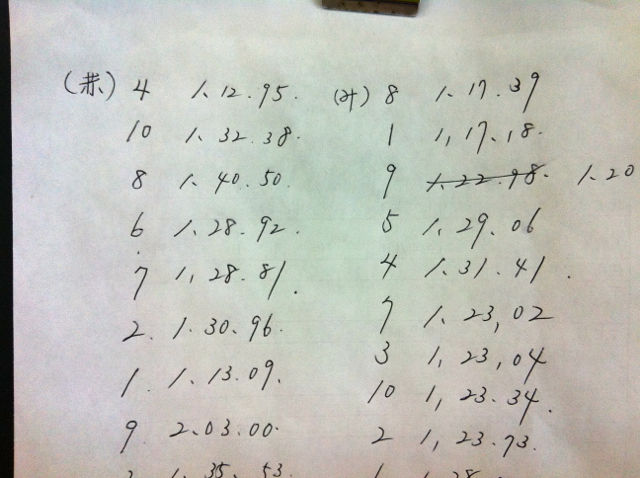 (赤) 4 1.12.95.
10 1.32.38.
8 1.40.50.
6 1.28.92.
7 1,28.81.
2. 1.30.96.
1. 1.13.09.
9. 2.03.00.
1.35.53
(オ) 8 1.17.39
1 1,17.18.
9 1.22.98. 1.20
5 1.29.06
4 1.31.41.
7 1.23,02
3 1,23,04
10 1,23.34.
2 1,23.73.